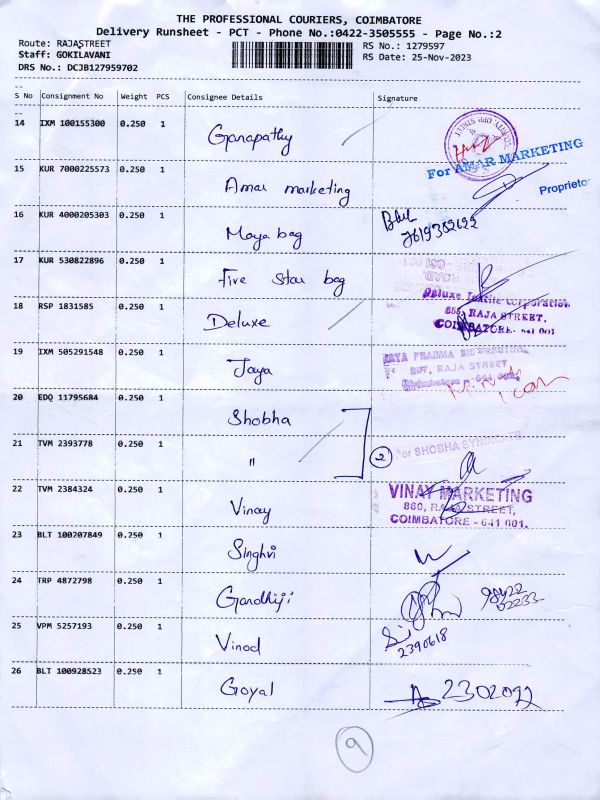 THE PROFESSIONAL COURIERS, COIMBATORE
Delivery Runsheet - PCT - Phone No.:0422-3505555 - Page No.:2
Route: RAJASTREET
Staff: GOKILAVANI
DRS No.: DCJB127959702
RS No.: 1279597
RS Date: 25-Nov-2023
S No Consignment No Weight PCS Consignee Details Signature
14 IXM 100155300 0.250 1 Ganapathy
15 KUR 7000225573 0.250 1 Amar marketing
For AMAR MARKETING
Proprietor
16 KUR 4000205303 0.250 1 Maya bag
17 KUR 530822896 0.250 1 Five Star bag
18 RSP 1831585 0.250 1 Deluxe
Deluxe Textile Corporation
RAJA STREET,
COIMBATORE- 641 001
19 IXM 505291548 0.250 1 Jaya
PHARMA
RAJA STREET
20 EDQ 11795684 0.250 1 Shobha
21 TVM 2393778 0.250 1 "
2
For SHOBHA SYNDICATE
22 TVM 2384324 0.250 1 Vinay
VINAY MARKETING
860, RAJA STREET,
COIMBATORE - 641 001.
23 BLT 100207849 0.250 1 Singhvi
24 TRP 4872798 0.250 1 Gandhiji
25 VPM 5257193 0.250 1 Vinod
2390618
26 BLT 100928523 0.250 1 Goyal
9